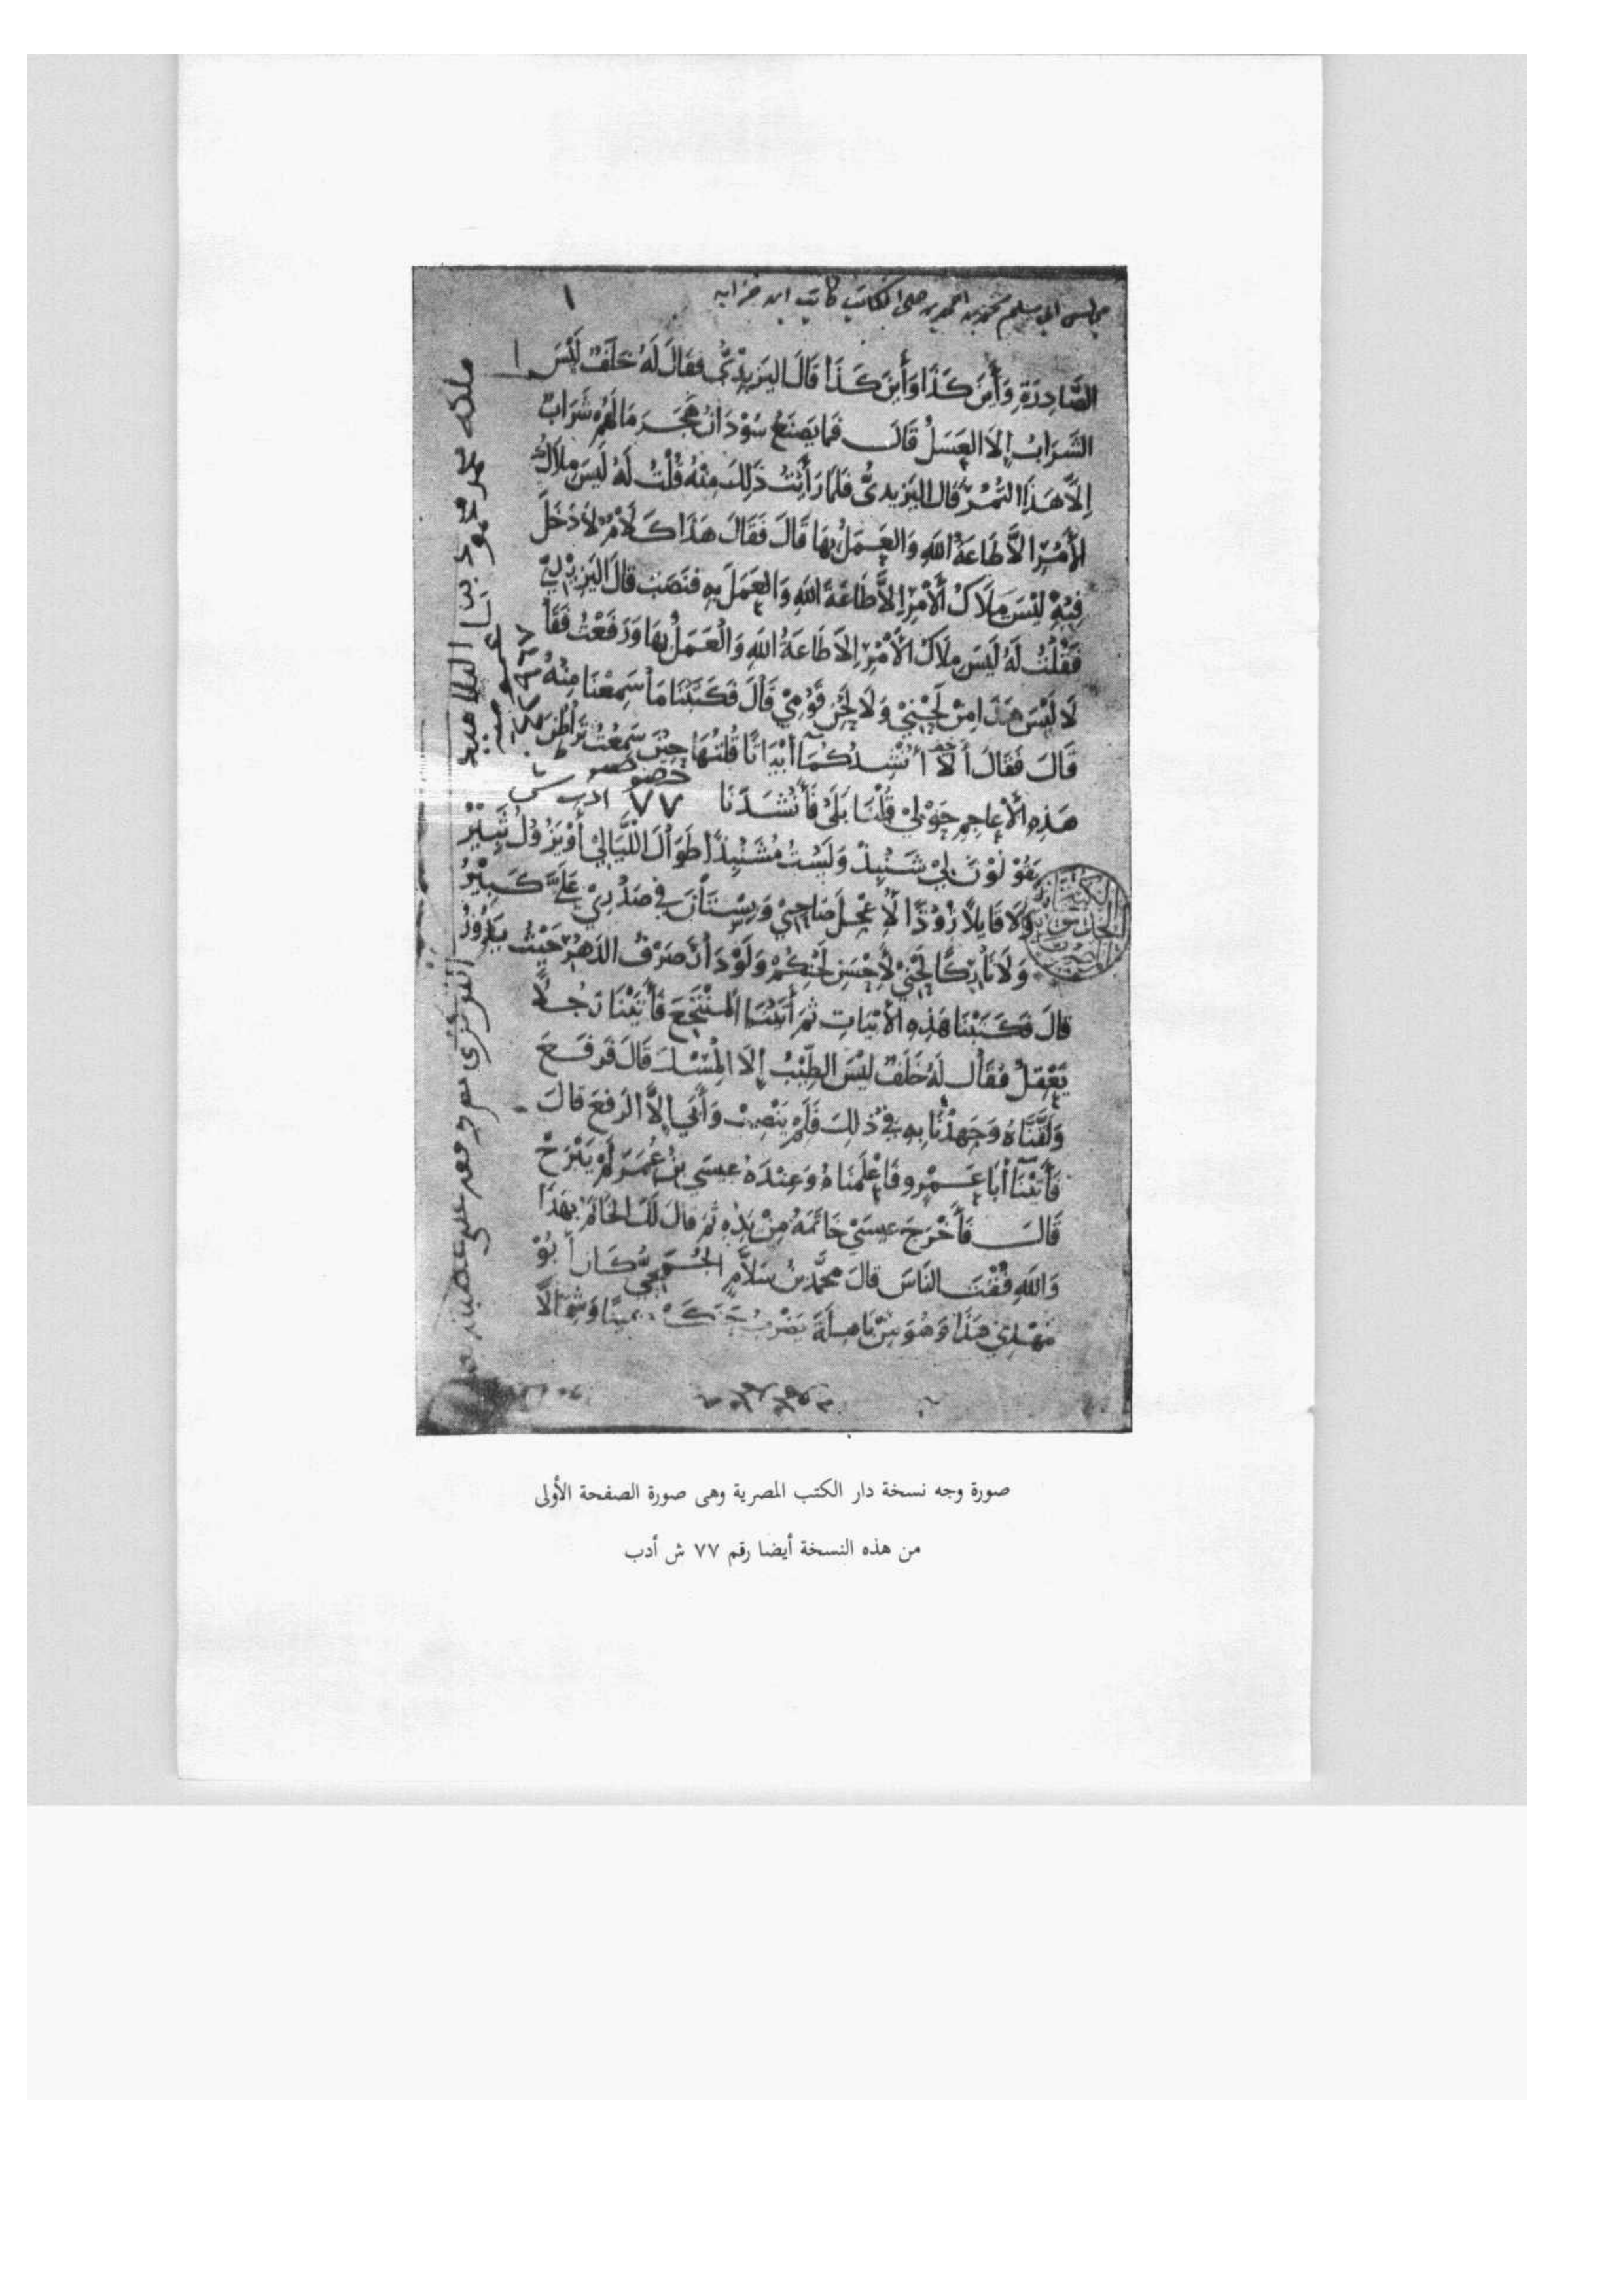 مجالس ابي مسلم محمد بن احمد بن علي الكاتب كاتب ابن حنزابه
١
الصَّادِرَةِ وَأَيْنَ كَذَا وَأَيْنَ كَذَا قَالَ اليَزِيدِيُّ فقَالَ لَهُ خَلَفٌ لَيْسَ
الشَّرَابُ إِلاَّ العَسَلُ قَالَ فَمَا يَصْنَعُ سُوْدَانُ هَجَرَ مَا لَهُمْ شَرَابٌ
إِلَّا هَذَا التَّمْرُ قَالَ اليَزِيدِيُّ فَلَمَّا رَأَيْتُ ذَلِكَ مِنْهُ قُلْتُ لَهُ لَيْسَ مِلاَكُ
الأَمْرِ إِلاَّ طَاعَةُ اللَّهِ وَالعَمَلُ بِهَا قَالَ فَقَالَ هَذَا كَلاَمٌ لاَ دَخَلَ
فِيْهِ لَيْسَ مِلاَكُ الأَمْرِ إِلاَّ طَاعَةَ اللَّهِ وَالعَمَلَ بِهِ فنَصَبَ قَالَ اليَزِيدِيُّ
فَقُلْتُ لَهُ لَيْسَ مِلاَكُ الأَمْرِ إِلاَّ طَاعَةُ اللَّهِ وَالْعَمَلُ بِهَا وَرَفَعْتُ فَقَالَ
لَا لَيْسَ هَذَا مِنْ لَحْنِيْ وَلاَ لَحْنِ قَوْمِيْ قَالَ فَكَتَبْنَا مَا سَمِعْنَا مِنْهُ
قَالَ فَقَالَ أَلاَ أُنْشِدُكُمَا أَبْيَاتًا قُلْتُهَا حِيْنَ سَمِعْتُ تَرَاطُنَ
هَذِهِ الأَعاجِمِ حَوْلِيْ قُلْنَا بَلَى فَأَنْشَدَنَا
خصوصية
٧٧ ادب ش
يَقُوْلُوْنَ لِيْ شَنْبِذْ وَلَسْتُ مُشَنْبِذًا طَوَالَ اللَّيَالِيْ أَوْ يَزُوْلَ ثَبِيْرُ
وَلَا قَائِلاً زُوْذًا لأُعْجِلَ صَاحِبِيْ وَبِسْتَانُ فِي صَدْرِيْ عَلَيَّ كَبِيْرُ
وَلَا تَارِكًا لَحْنِيْ لأُحْسِنَ لَحْنَكُمْ وَلَوْ دَارَ صَرْفُ الدَّهْرِ حَيْثُ يَدُوْرُ
قَالَ فَكَتَبْنَا هَذِهِ الأَبْيَاتِ ثُمَّ أَتَيْنَا المُنْتَجِعَ فَأَتَيْنَا رَجُلاً
يَعْقِلُ فَقَالَ لَهُ خَلَفٌ لَيْسَ الطِّيْبُ إِلاَّ الْمِسْكَ قَالَ فَرَفَعَ
وَلَقَّنَّاهُ وَجَهِدْنَا بِهِ فِيْ ذَلِكَ فَلَمْ يَنْصِبْ وَأَبَى إِلاَّ الرَّفْعَ قَالَ
فَأَتَيْنَا أَبَا عَمْرٍو فَأَعْلَمْنَاهُ وَعِنْدَهُ عِيسَى بْنُ عُمَرَ لَمْ يَبْرَحْ
قَالَ فَأَخْرَجَ عِيسَى خَاتَمَهُ مِنْ يَدِهِ ثُمَّ قَالَ لَكَ الخَاتَمُ بِهَذَا
وَاللَّهِ فُقْتَ النَّاسَ قَالَ مُحَمَّدُ بْنُ سَلاَّمٍ الجُمَحِيُّ كَانَ أَبُوْ
مَهْدِيٍّ هَذَا وَهُوَ مِنْ بَاهِلَةَ يَضْرِبُ حَنَكَيْهِ يَمِينًا وَشِمَالاً
صورة وجه نسخة دار الكتب المصرية وهى صورة الصفحة الأولى
من هذه النسخة أيضا رقم ٧٧ ش أدب